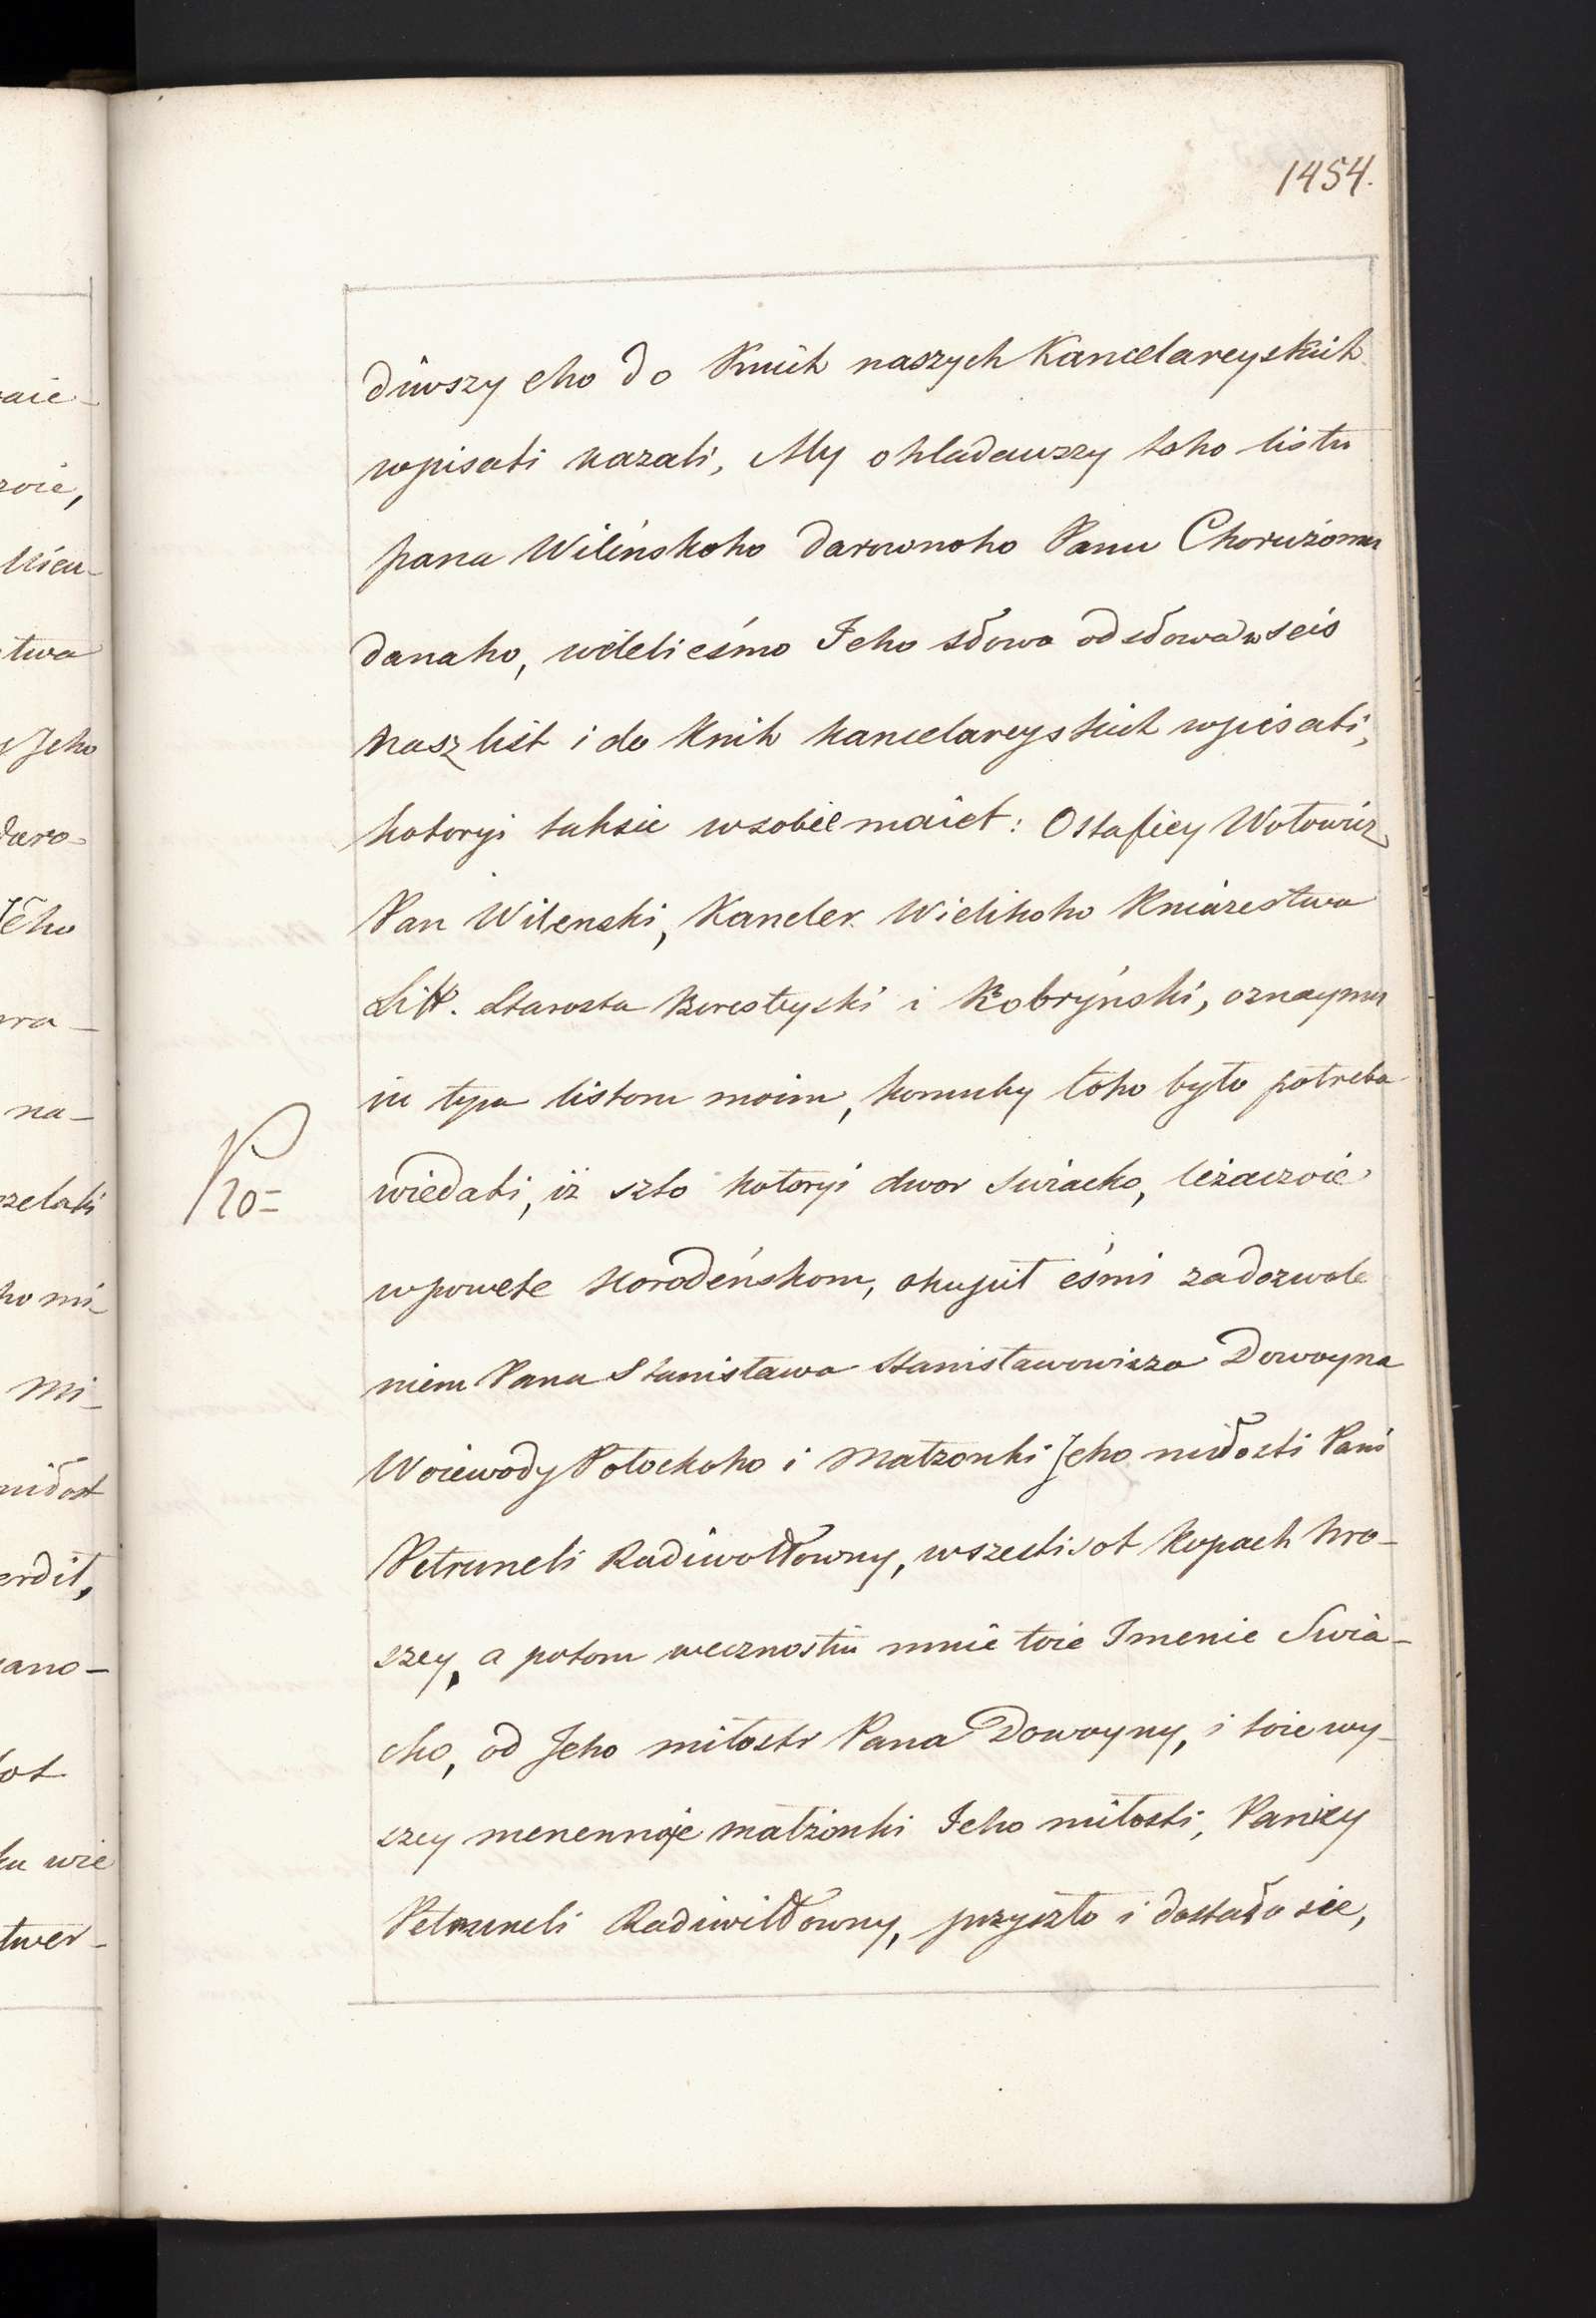 1454.
diwszy eho do Knih naszych Kancelareyskich
wpisati kazali, My ohladawszy toho listu
pana Wilenskoho darownoho Panu Chorużomu
danaho, weleli eśmo Jeho słowo od słowa w seis
nasz list i do Knih kancelareyskich wpisati,
kotoryi taksie wsobie maiet: Ostafiey Wołowicz
Pan Wilenski, Kancler. Wielikoho Kniazestwa
Litt. Starosta Beresteyski i Kobryński, oznaymu
iu tym listom moim, komuby toho było potreba
wiedati, iż szto kotoryi dwor Swiacko, leżaczoie
w powete Horodeńskom, okupił eśmi za dozwole
niem Pana Stanisława Stanisławowicza Dowoyna
Woiewody Połockoho i Małzonki Jeho miłosti Pani
Petruneli Radiwołłowny, w szesti sot kopach hro-
szey, a potom wecznostiu mnie toie Imenie Swia-
cko, od Jeho miłosti Pana Dowoyny, i toie wy-
szey menennoje małżonki Jeho miłosti, Paniey
Petruneli Radiwiłłowny, przyszło i dostało sie,
Pro=
aie-
zoie,
twa
Jeho
daro-
Jeho
na-
ho mi-
mi-
miłost
erdił,
ano-
ot
ku wie
twer-